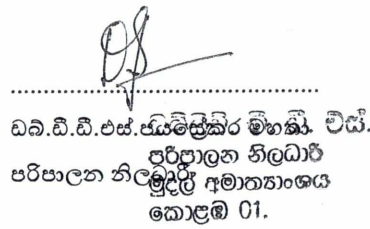 ඩබ්.ඩී.ඩී.එස්.ජයසේකර මහතා. එස්.
පරිපාලන නිලධාරි
පරිපාලන නිලධාරී
මුදල් අමාත්‍යාංශය
කොළඹ 01.